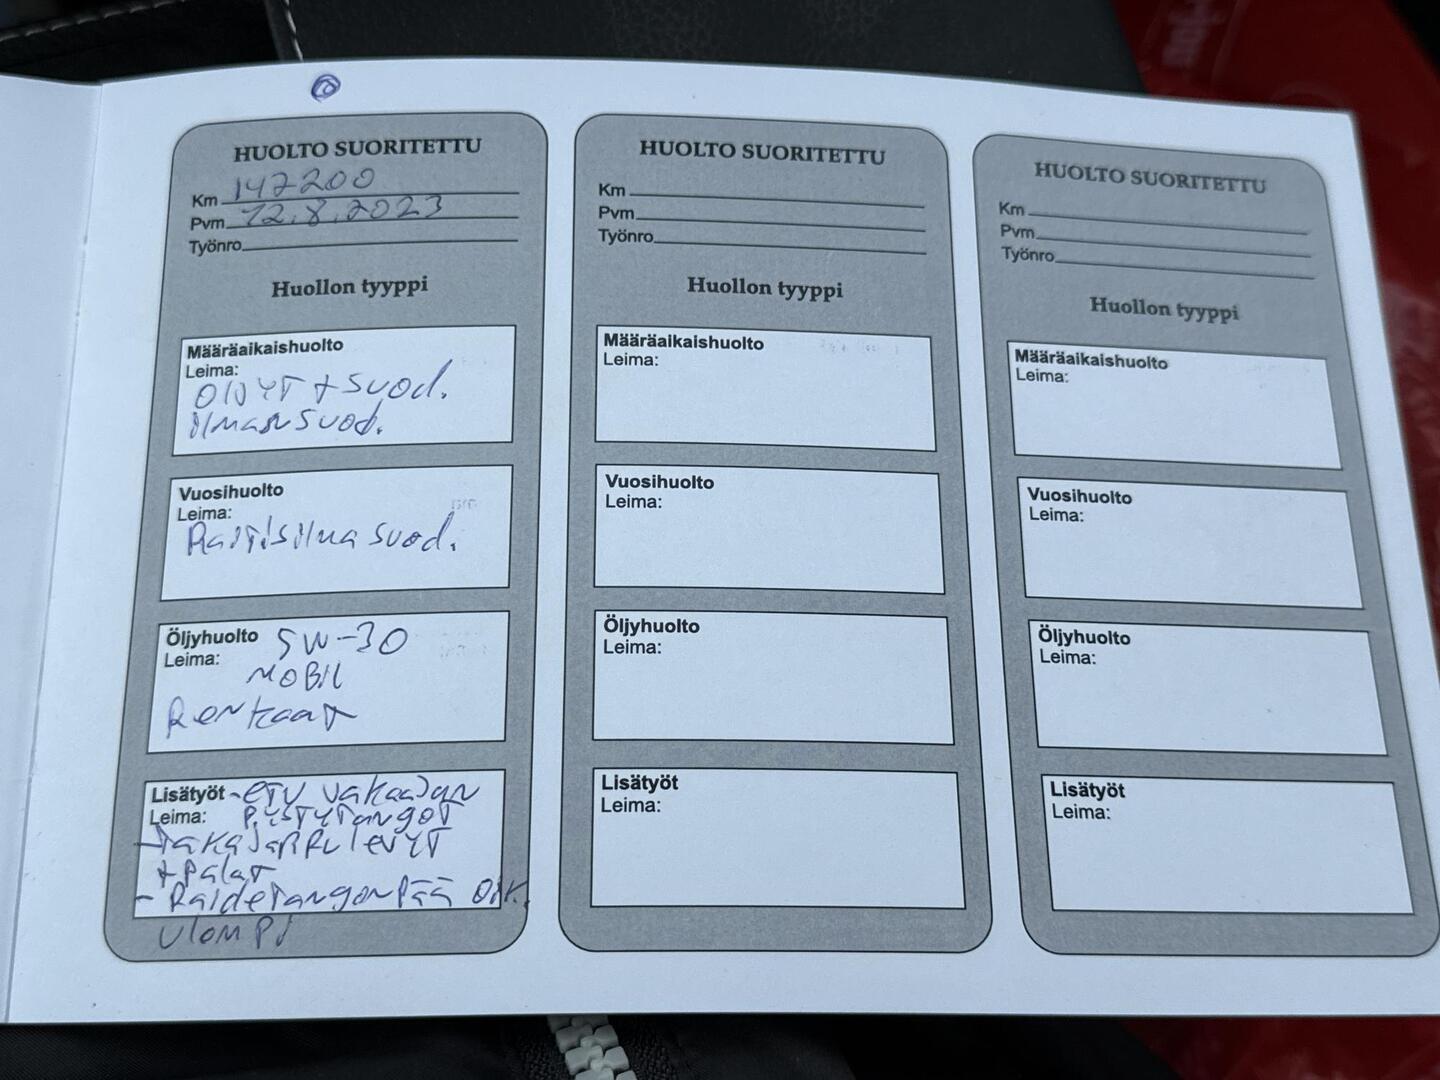 HUOLTO SUORITETTU
Km 147200
Pvm 12.8.2023
Työnro
Huollon tyyppi
Määräaikaishuolto
Leima:
ÖLJYT + SUOD.
ilmansuod.
Vuosihuolto
Leima:
Raitisilmasuod.
Öljyhuolto 5W-30
Leima:
MOBIL
Renkaat
Lisätyöt - ETU vakaajan
Leima: Pystytangot
- Takajarrulevyt
+ Palat
- Raidetangonpää oik.
ulompi
HUOLTO SUORITETTU
Km
Pvm
Työnro
Huollon tyyppi
Määräaikaishuolto
Leima:
Vuosihuolto
Leima:
Öljyhuolto
Leima:
Lisätyöt
Leima:
HUOLTO SUORITETTU
Km
Pvm
Työnro
Huollon tyyppi
Määräaikaishuolto
Leima:
Vuosihuolto
Leima:
Öljyhuolto
Leima:
Lisätyöt
Leima: